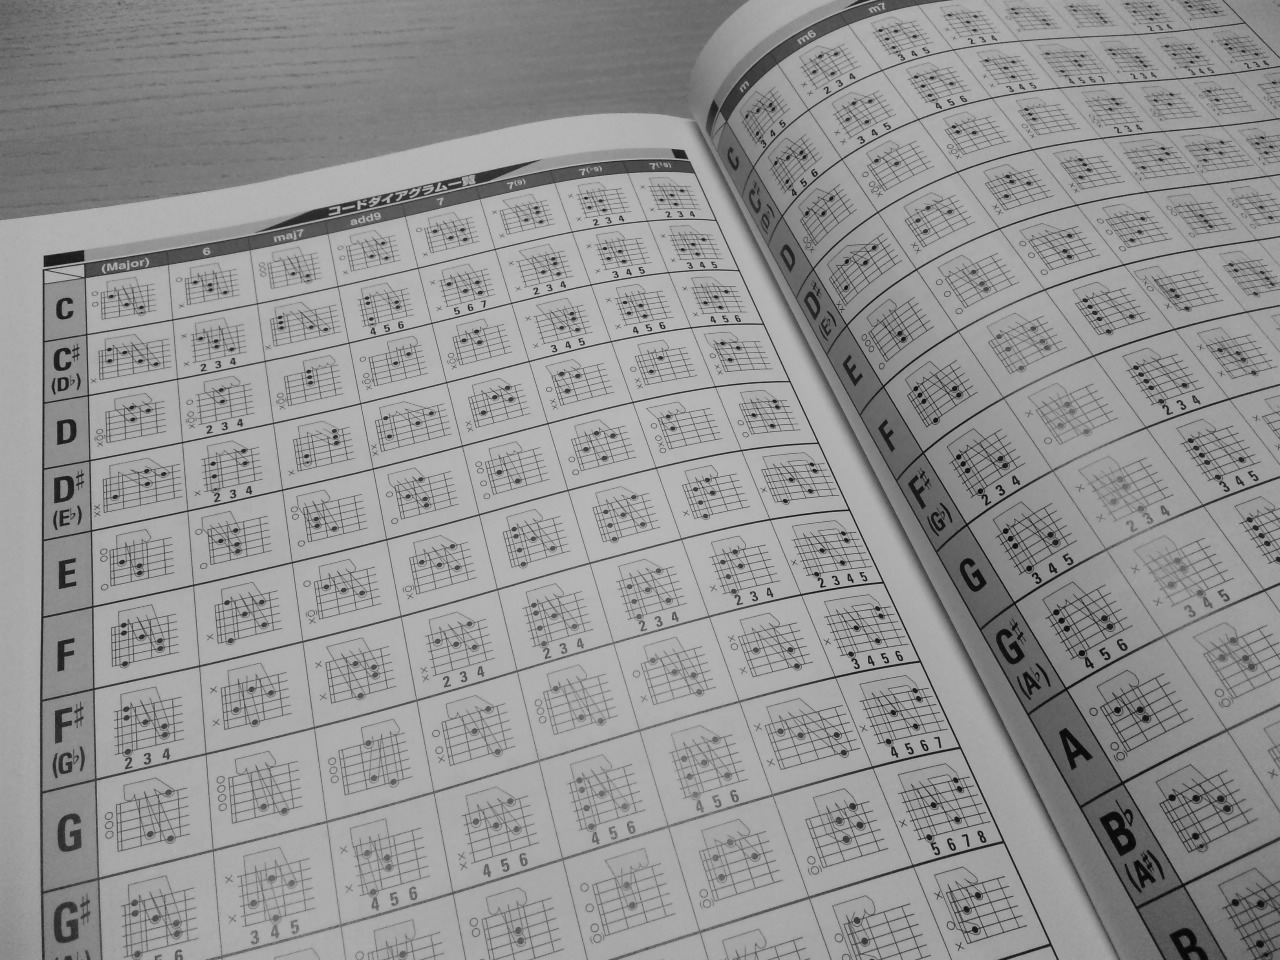 コードダイアグラム一覧
(Major) 6 maj7 add9 7 7(9) 7(♭9)
C
2 3 4 2 3 4
C♯ 2 3 4 4 5 6 5 6 7 2 3 4 3 4 5 3 4 5
(D♭)
D 2 3 4 3 4 5 4 5 6 4 5 6
D♯ 2 3 4
(E♭)
E
F 2 3 4 2 3 4 5
F♯ 2 3 4 2 3 4 2 3 4 2 3 4 3 4 5 6
(G♭)
G 4 5 6 7
G♯ 3 4 5 4 5 6 4 5 6 4 5 6 4 5 6 5 6 7 8
m m6 m7
C 3 4 5 2 3 4 3 4 5 2 3 4
C♯ 4 5 6 3 4 5 4 5 6 3 4 5 4 5 6 7 2 3 4 3 4 5 2 3 4
(D♭)
D
D♯
(E♭)
E
F
F♯ 2 3 4 2 3 4
(G♭)
G 3 4 5 2 3 4 3 4 5
G♯ 4 5 6 3 4 5
(A♭)
A
B♭
(A♯)
B